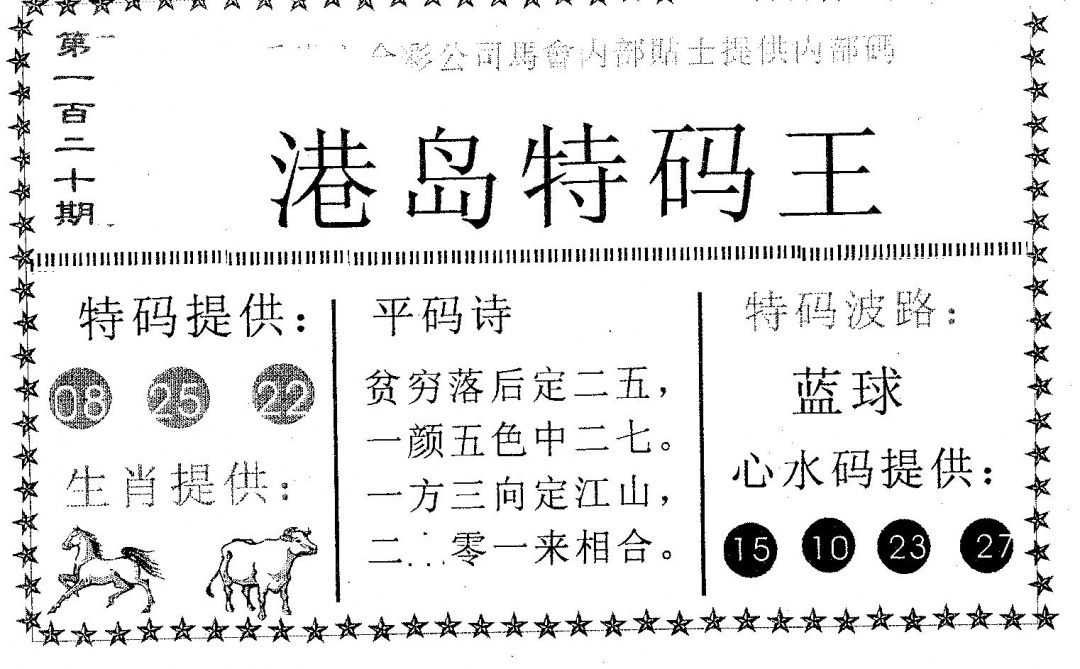 第一百二十期
彩公司馬會内部貼士提供内部碼
港岛特码王
特码提供：
08 25 22
生肖提供：
平码诗
贫穷落后定二五，
一颜五色中二七。
一方三向定江山，
二...零一来相合。
特码波路：
蓝球
心水码提供：
15 10 23 27